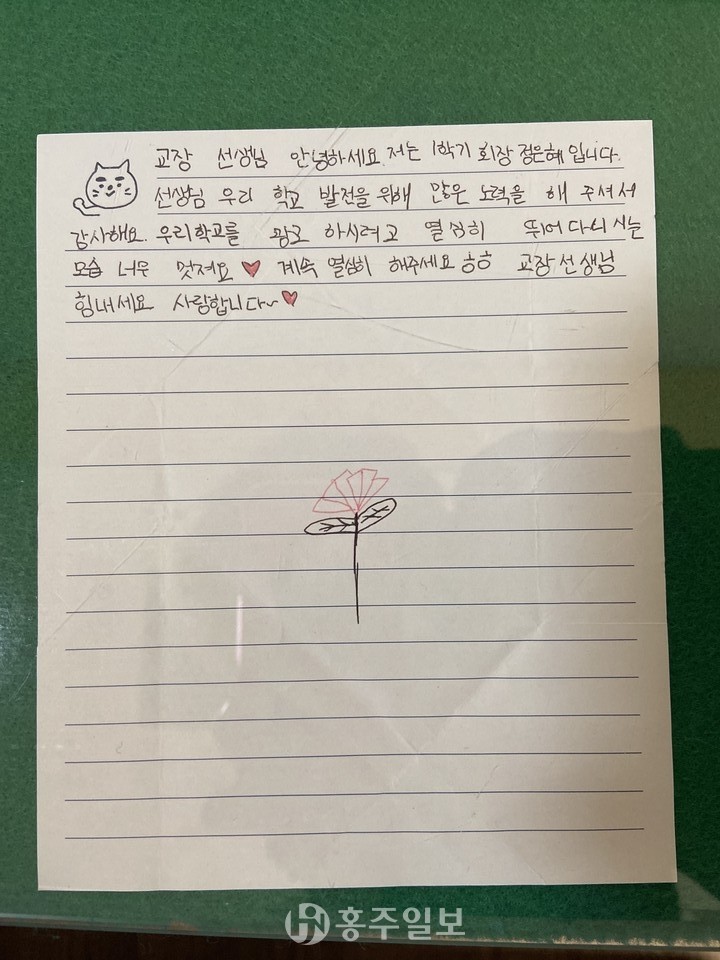 교장 선생님 안녕하세요. 저는 1학기 회장 정은혜 입니다.
선생님 우리 학교 발전을 위해 많은 노력을 해 주셔서
감사해요. 우리학교를 광로 하시려고 열심히 뛰어 다니시는
모습 너무 멋져요 ♥ 계속 열심히 해주세요 ㅎㅎ 교장선생님
힘내세요 사랑합니다~ ♥
홍주일보